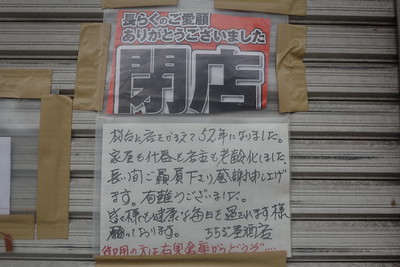 長らくのご愛顧
ありがとうございました
閉店
刈谷に店をかまえて52年になりました。
家屋も什器も店主も老齢化しました。
長い間ご贔屓下さり感謝申し上げ
ます。有難うございました。
皆々様も健康な毎日を過されます様
願っております。
御用の方は右裏倉庫からどうぞ